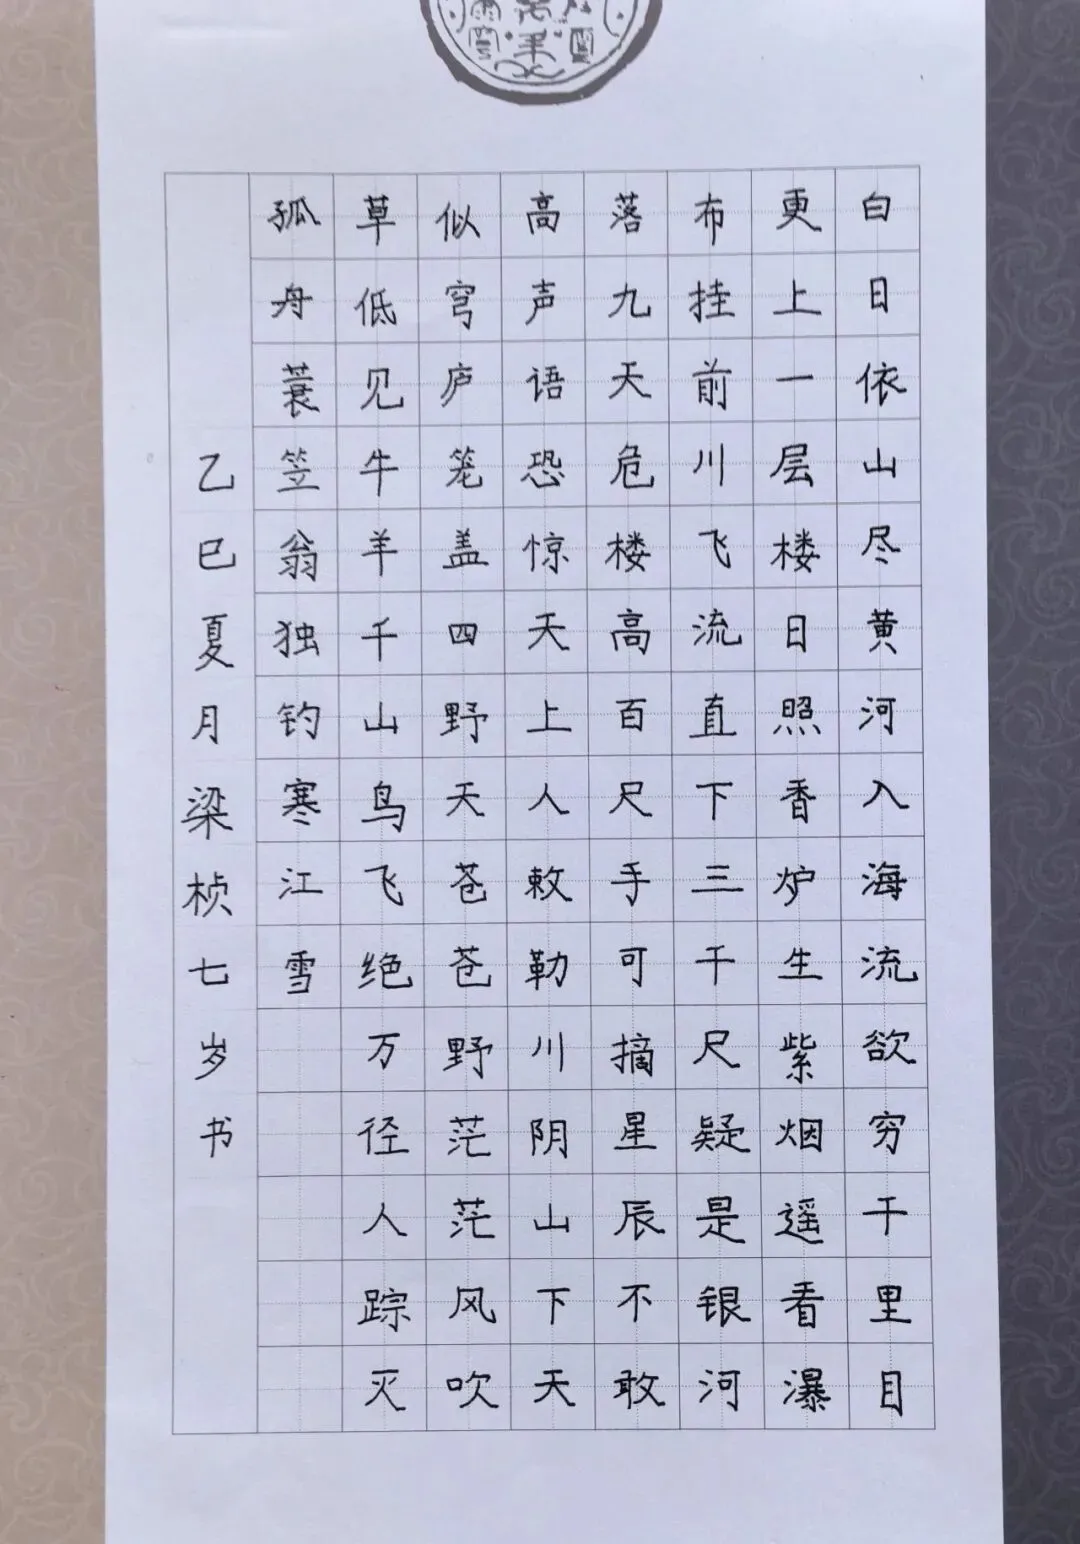 白日依山尽黄河入海流欲穷千里目
更上一层楼日照香炉生紫烟遥看瀑
布挂前川飞流直下三千尺疑是银河
落九天危楼高百尺手可摘星辰不敢
高声语恐惊天上人敕勒川阴山下天
似穹庐笼盖四野天苍苍野茫茫风吹
草低见牛羊千山鸟飞绝万径人踪灭
孤舟蓑笠翁独钓寒江雪
乙巳夏月梁桢七岁书